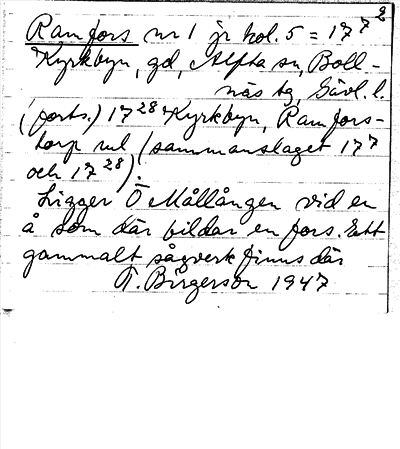 2
Ramfors nr 1 jr kol. 5 = 17⁷
Kyrkbyn, gd, Alfta sn, Boll-
näs tg, Gävl. l.
(forts.) 17²⁸ Kyrkbyn, Ramfors-
torp ul (sammanslaget 17⁷
och 17²⁸).
Ligger Ö Mållången vid en
å som där bildar en fors. Ett
gammalt sågverk finns där
T. Birgerson 1947